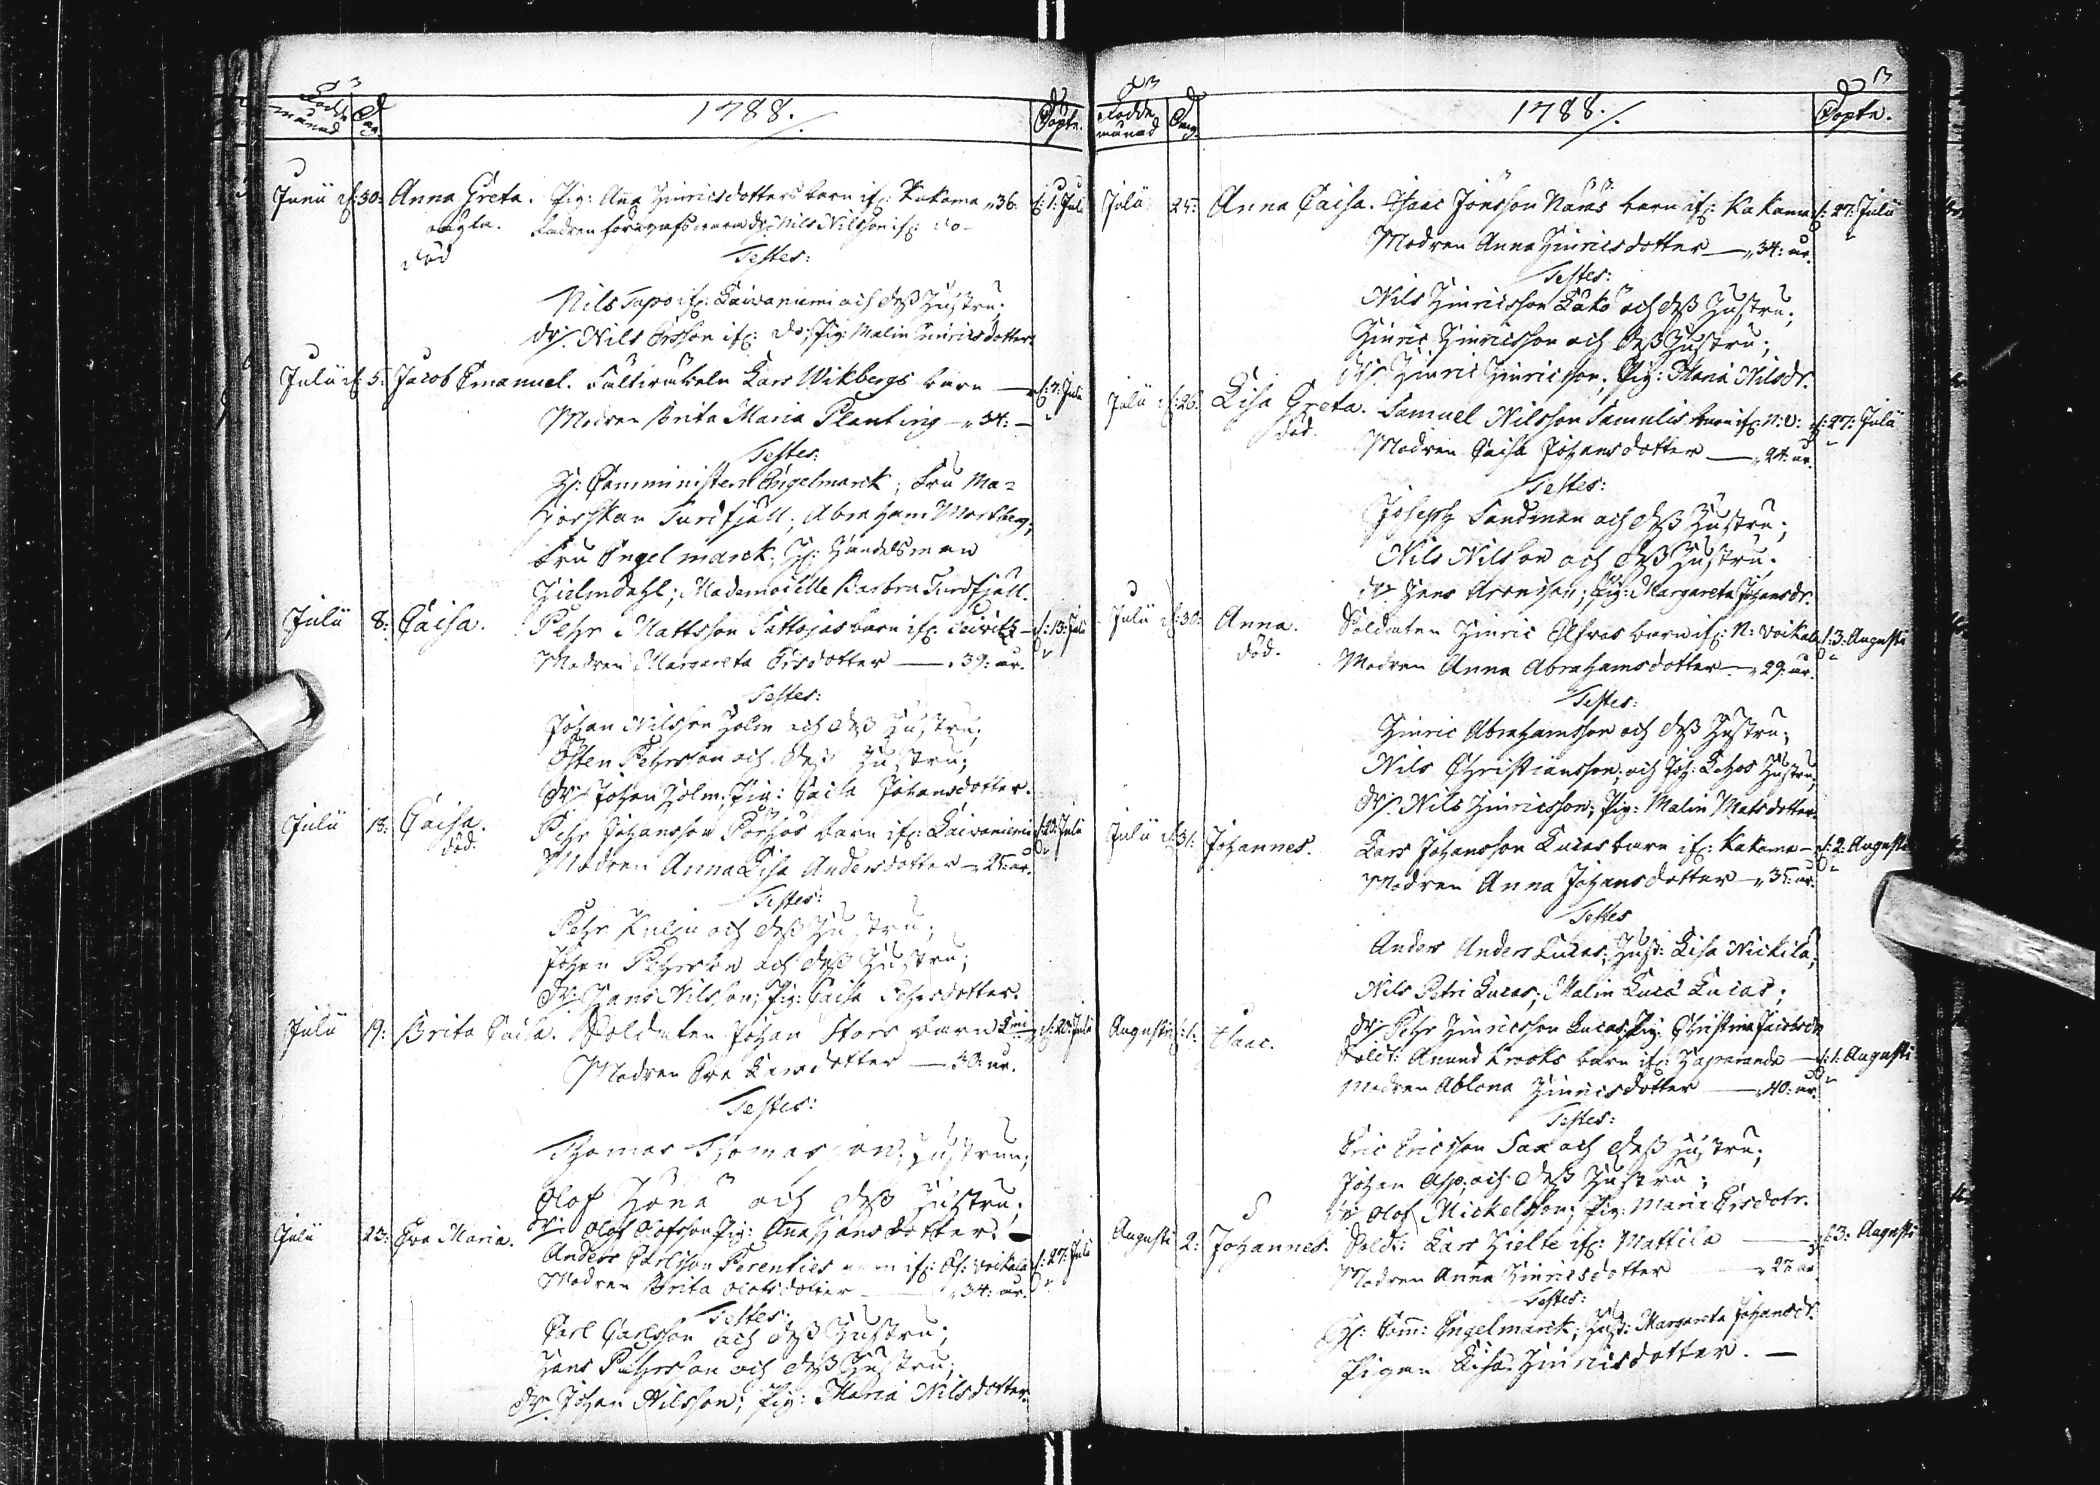 Födde månad Dag 1788. Döpte.
Junii d: 30: Anna Greta. Pig: Anna Hinricsdotters barn if: Kakama „36. d: 1: Juli
oägta. Fadren före gifs vara dr: Nils Nilsson if: do
död
Testes:
Nils Tapo if: Laivaniemi och dess Hustru;
dr: Nils Ersson if: do; Pig: Malin Hinricsdotter
Julii d: 5: Jacob Emanuel. Fältväbeln Lars Wikbergs barn — d: 7: Juli
Modren Brita Maria Planting — „34: —
Testes:
H: Comministern Engelmarck; Fru Ma-
jorskan Turdfjäll; Abraham Mortberg;
Fru Engelmarck; H: Handelsman
Hielmdahl; Mademoiselle Barbra Turdfjäll.
Julii 8: Caisa. Pehr Mattsson Pattojas barn if: — d: 13: Juli
Modren Margareta Ersdotter — „39: år.
Testes:
Johan Nilsson Holm och dess Hustru;
Östen Pehrsson och dess Hustru;
dr: Johan Holm; Pig: Caisa Johansdotter.
Julii 18: Caisa. Pehr Johansson Pörhös barn if: Laivaniemi d: 20: Juli
död. Modren Anna Lisa Andersdotter — „25: år.
Testes:
Pehr Kulju och dess Hustru;
Johan Pehrsson och dess Hustru;
dr: Hans Nilsson; Pig: Caisa Pehrsdotter.
Julii 19: Brita Caisa. Soldaten Johan Stors barn d: 20: Juli
Modren Eva Larsdotter — 30: år.
Testes:
Thomas Thomasson; Hustrun;
Olof Hönä och dess Hustru;
dr: Olof Olofsson Pig: Anna Hansdotter. —
Julii 23: Eva Maria. Anders Carlsson Perenties barn if: Öf: Voikala d: 27: Juli
Modren Brita Olofsdotter — „34: år.
Testes:
Carl Carlsson och dess Hustru;
Hans Pehrsson och dess Hustru;
dr: Johan Nilsson; Pig: Maria Nilsdotter.
Födde månad Dag. 1788. Döpte.
Julii 25: Anna Caisa. Isaac Jönsson Nääs barn if: Kakama d: 27: Julii
Modren Anna Hinricsdotter — „34: år.
Testes:
Nils Hinricsson Läkö och dess Hustru;
Hinric Hinricsson och dess Hustru;
dr: Hinric Hinricsson; Pig: Maria Nilsdr.
Julii d: 26: Lisa Greta. Samuel Nilsson Samulis barn if: N: V: d: 27: Julii
död. Modren Caisa Johansdotter — „24: år.
Testes:
Joseph Sandman och dess Hustru;
Nils Nilsson och dess Hustru;
dr: Hans Aronsson; Pig: Margareta Johansdr.
Julii d: 30: Anna. Soldaten Hinric Elfvas barn if: N: Voikala d: 3: Augusti
död. Modren Anna Abrahamsdotter — „29: år.
Testes:
Hinric Abrahamsson och dess Hustru;
Nils Christiansson; och Joh: Lehos Hustru;
dr: Nils Hinricsson; Pig: Malin Matsdotter.
Julii d: 31: Johannes. Lars Johansson Lucas barn if: Kakama — d: 2: Augusti
Modren Anna Johansdotter — „35: år.
Testes
Anders Anders Lucas; Hust: Lisa Nickila;
Nils Petri Lucas; Malin Lucä Lucas;
dr: Pehr Hinricsson Lucas; Pig: Christina Jacobsdr
Augusti d: 1: Isaac. Sold: Anund Kroks barn if: Haparanda — d: 1: Augusti
Modren Ablona Hinricsdotter — „40: år.
Testes:
Eric Ericsson Sax och dess Hustru;
Johan Asp; och dess Hustru;
dr: Olof Mickelsson; Pig: Maria Ersdotr.
Augusti 2: Johannes. Sold: Lars Hielte if: Mattila — d: 3: Augusti
Modren Anna Hinricsdotter — „27: år
Testes:
H: Com: Engelmarck; Hust: Margareta Johansdr.
Pigan Lisa Hinricsdotter. —